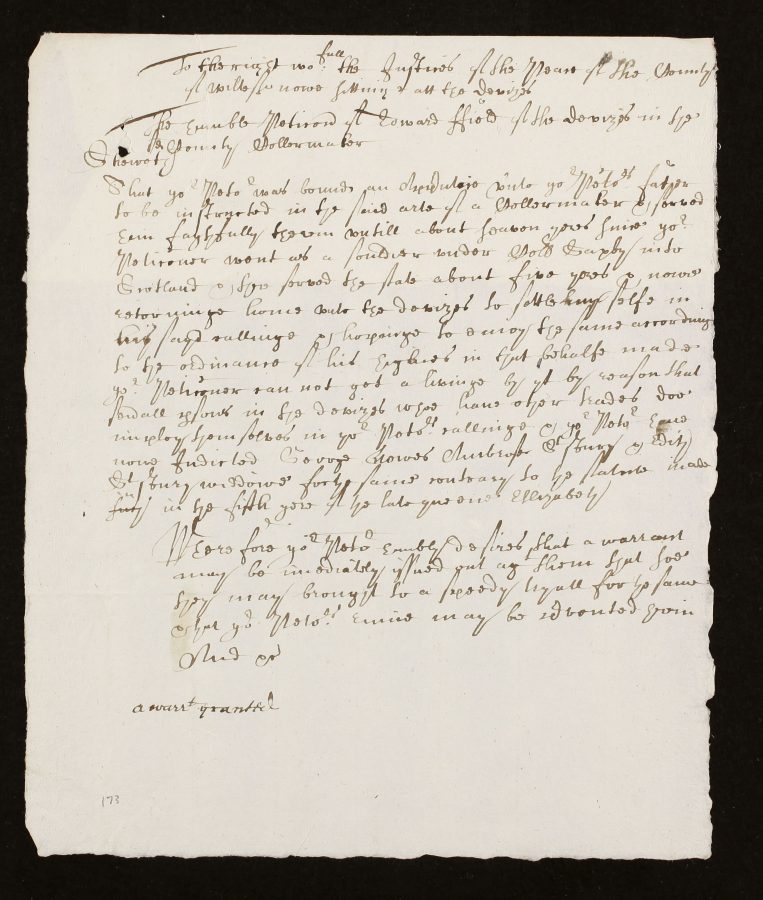 To the right wo: full the Justices of the Peace of the County
of Wiltes nowe sitting att the Devizes
The humble Peticon of Edward ffield of the Devizes in the
said County Collermaker
Sheweth
That yor Petor was bound an Apprentice unto yor Petors father
to be instructed in the said arte of a Collermaker & served
him faithfully therein untill about seaven yeres since yor
Peticoner went as a souldier under Coll Saxby into
Scotland & hath served the state about five yeres & nowe
retorninge home unto the Devizes to settle him selfe in
his sayd callinge & hopinge to enioy the same according
to the ordinance of his highnes in that behalfe made
yor Peticoner can not get a livinge by yt by reason that
sevall psons in the Devizes whoe have other trades doe
imploy themselves in yor Petors callinge & yor Petor have
none Indicted George Edith
widdowe for the same contrary to the statute made
in the fifth yere of the late queene Elizabeth
Wherefore yor Petor humbly desires that a warrant
may be imediately issued out agt them that soe
they may brought to a speedy tryall for the same
& that yor Petors may be prevented herein
And &c
a warrt granted
173